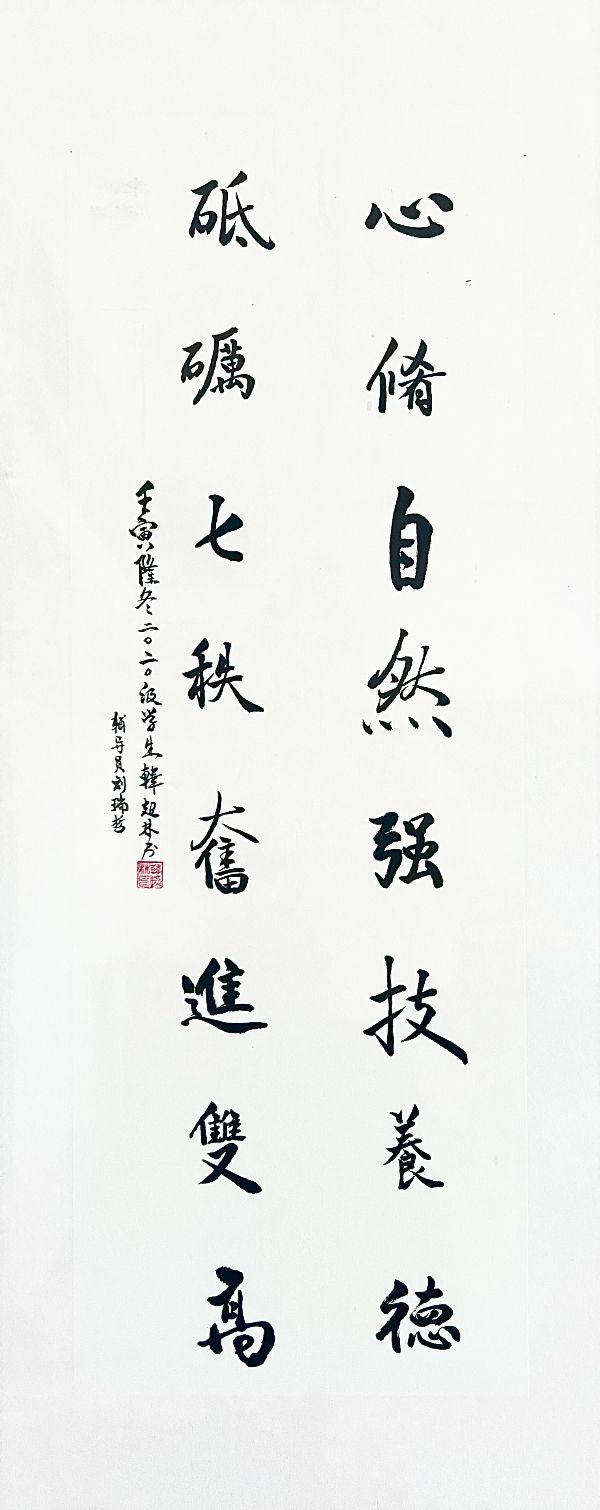 心脩自然强技養德
砥礪七秩奮進雙高
壬寅隆冬二〇二〇级学生韓超林书
輔导員刘瑞哲